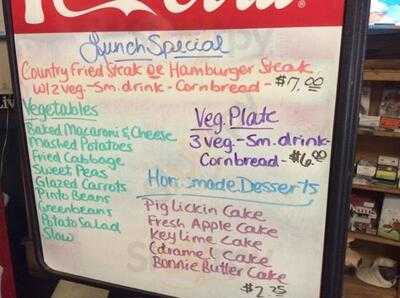 Lunch Special
Country Fried Steak or Hamburger Steak
w/2 veg.-Sm. drink-Cornbread-$7.00
Vegetables
Baked Macaroni & Cheese
Mashed Potatoes
Fried Cabbage
Sweet Peas
Glazed Carrots
Pinto Beans
Greenbeans
Potato Salad
Slaw
Veg. Plate
3 veg.-Sm. drink-
Cornbread-$6.00
Homemade Desserts
Piglickin Cake
Fresh Apple Cake
Key Lime Cake
Caramel Cake
Bonnie Butter Cake
$2.25